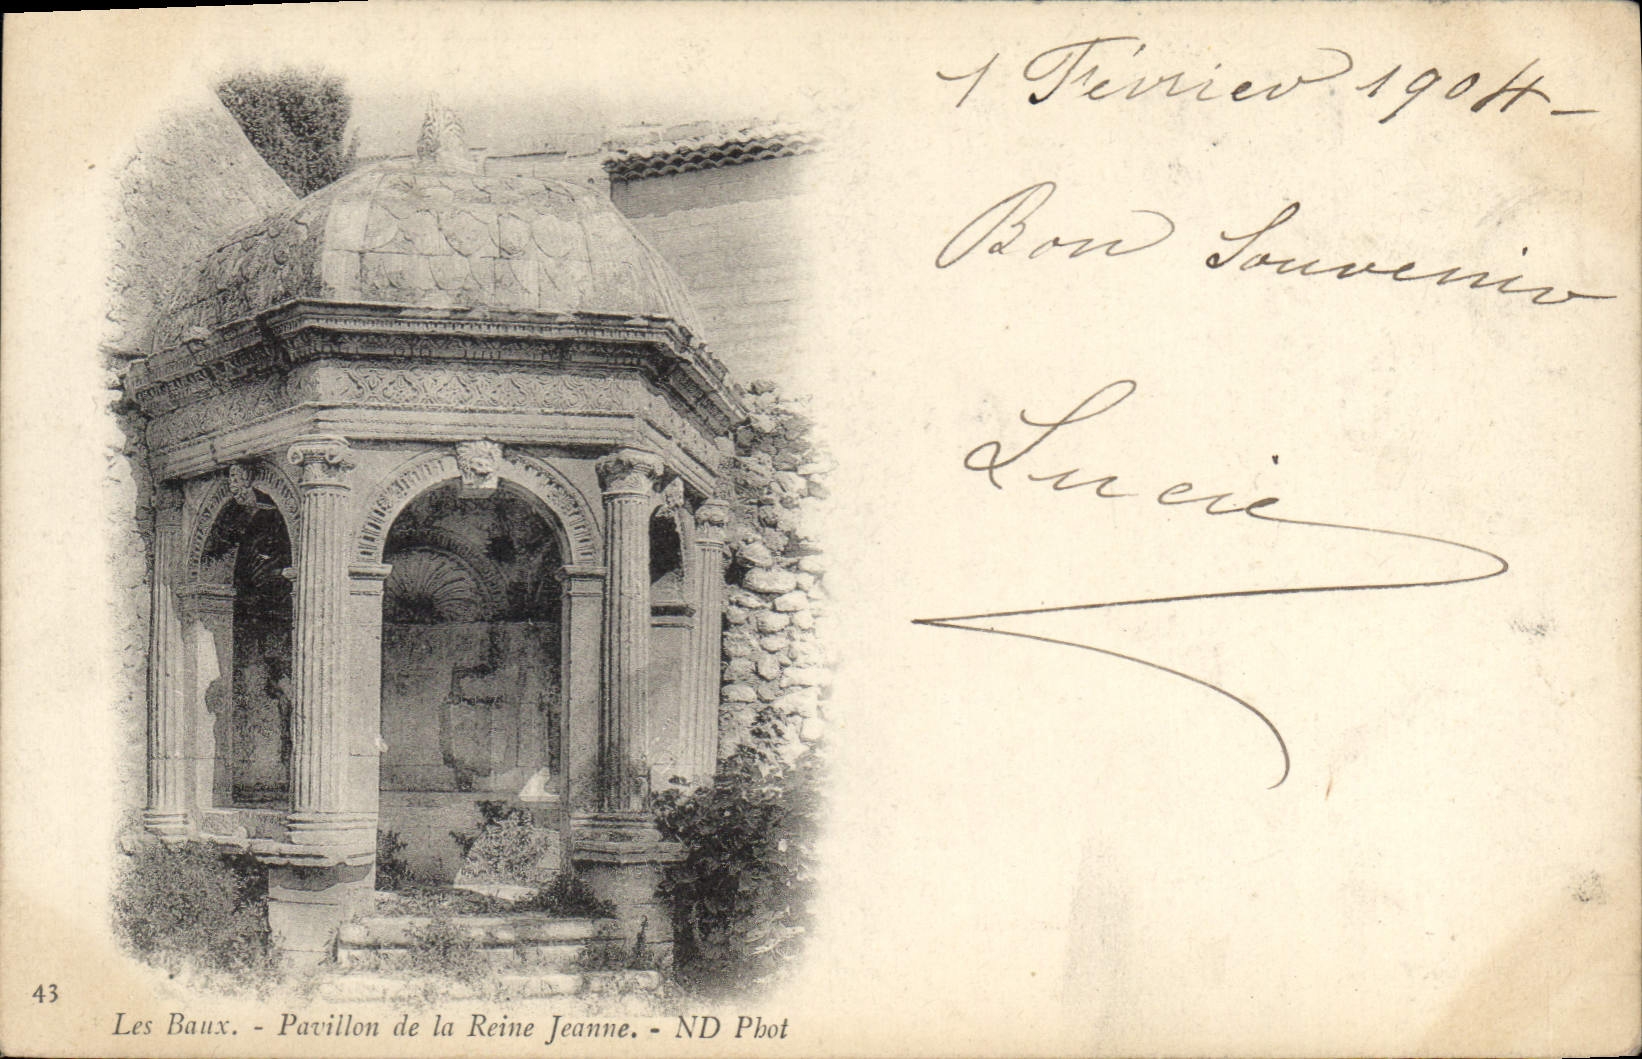 1 Février 1904 -
Bon Souvenir
Lucie
43
Les Baux. - Pavillon de la Reine Jeanne. - ND Phot